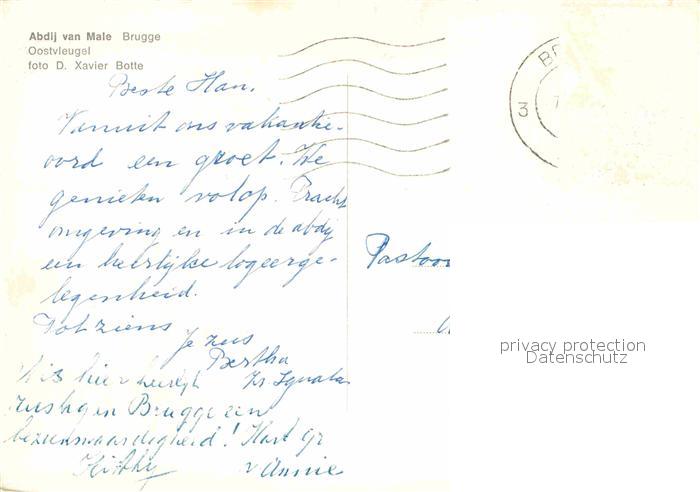 Abdij van Male Brugge
Oostvleugel
foto D. Xavier Botte
Beste Han.
Vanuit ons vakantie-
oord een groet. We
genieten volop. Pracht
omgeving en in de abdij
een heerlijke logeerge-
legenheid.
Tot ziens
je zus
Bertha
Zr. Ignatia
is hier heerlijk
rustig en Brugge een
bezienswaardigheid! Hart. gr
v Annie
Pastoor
3
privacy protection
Datenschutz